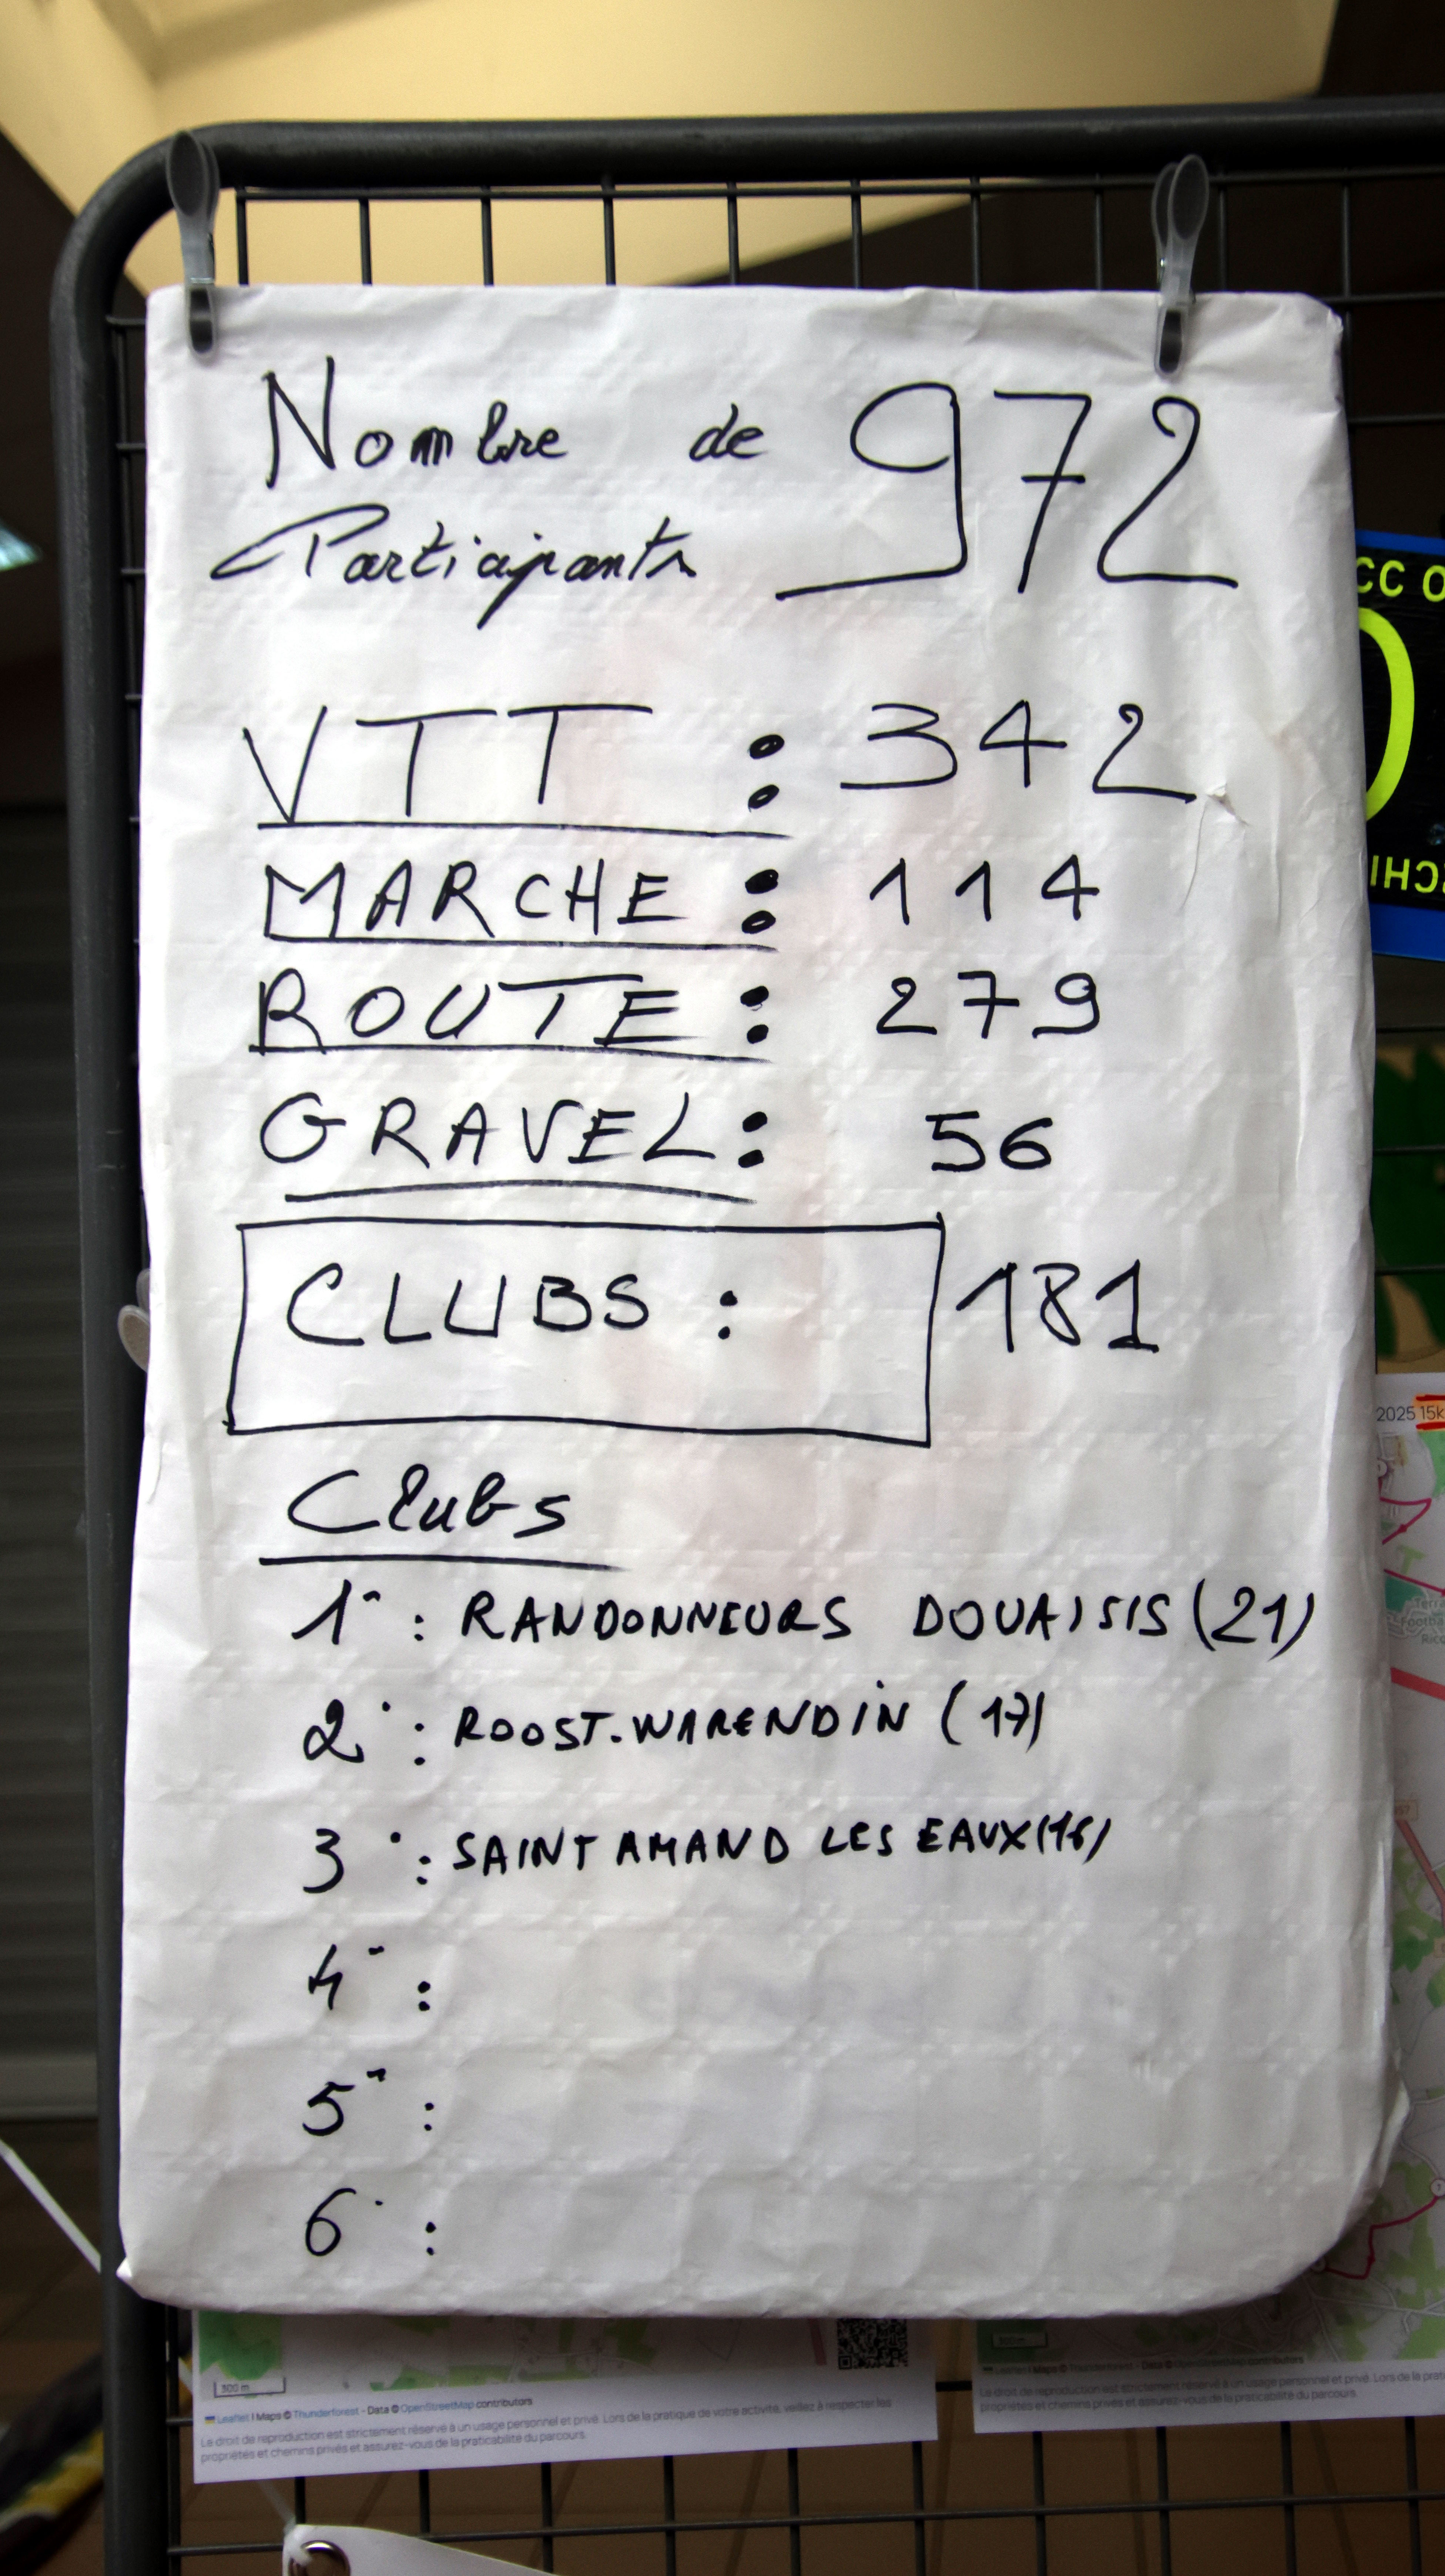 Nombre de 972
Participants
VTT : 342
MARCHE : 114
ROUTE : 279
GRAVEL : 56
CLUBS : 181
Clubs
1° : RANDONNEURS DOUAISIS (21)
2° : ROOST.WARENDIN (17)
3° : SAINT AMAND LES EAUX (16)
4° :
5° :
6° :
CC O
2025 15k
300 m
Leaflet | Maps © Thunderforest - Data © OpenStreetMap contributors
Le droit de reproduction est strictement réservé à un usage personnel et privé. Lors de la pratique de votre activité, veillez à respecter les
propriétés et chemins privés et assurez-vous de la praticabilité du parcours.
Leaflet | Maps © Thunderforest - Data © OpenStreetMap contributors
Le droit de reproduction est strictement réservé à un usage personnel et privé. Lors de la prat
propriétés et chemins privés et assurez-vous de la praticabilité du parcours.